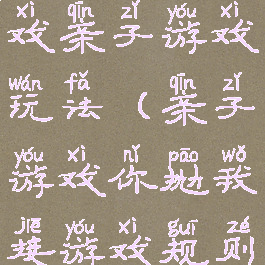 xì qīn zǐ yóu xì
戏亲子游戏
wán fǎ qīn zǐ
玩法(亲子
yóu xì nǐ pāo wǒ
游戏你抛我
jiē yóu xì guī zé
接游戏规则